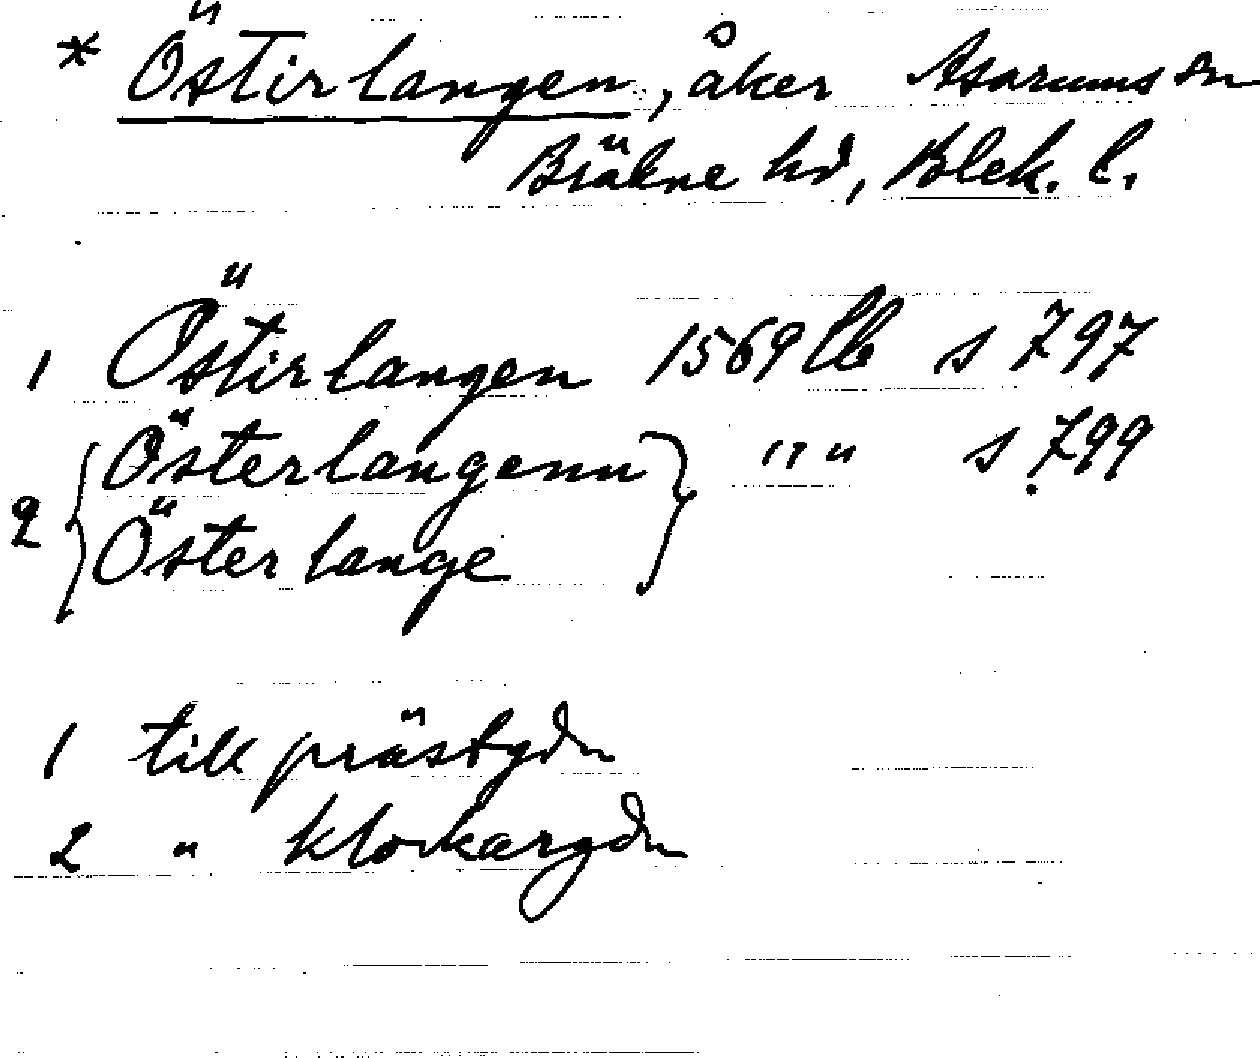 * Östirlangen, åker Asarums sn
Bräkne hd, Blek. l.
1 Östirlangen 1569 lb s 797
2 { Österlangenn } " " s. 799
Österlange
1 till prästgdn
2 " klockargdn